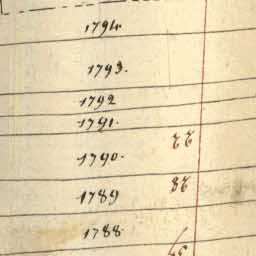 1794.
1793.
1792
1791.
1790.
1789
1788